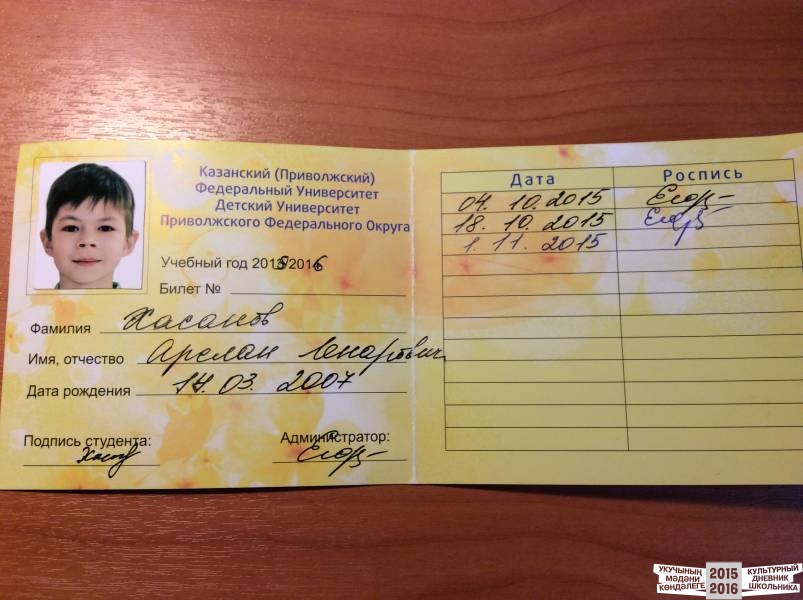 Казанский (Приволжский)
Федеральный Университет
Детский Университет
Приволжского Федерального Округа
Учебный год 2015 2016
Билет №
Фамилия Хасанов
Имя, отчество Арслан Ленартович
Дата рождения 14.03. 2007
Подпись студента:
Администратор:
Дата Роспись
04. 10. 2015
18. 10. 2015
1. 11. 2015
УКУЧЫНЫҢ
МӘДӘНИ
КӨНДӘЛЕГЕ
2015
2016
КУЛЬТУРНЫЙ
ДНЕВНИК
ШКОЛЬНИКА